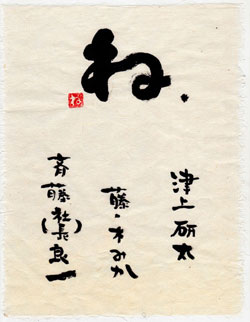 ね.
ね
津上研太
藤ノ木みか
斉藤(社長)良一